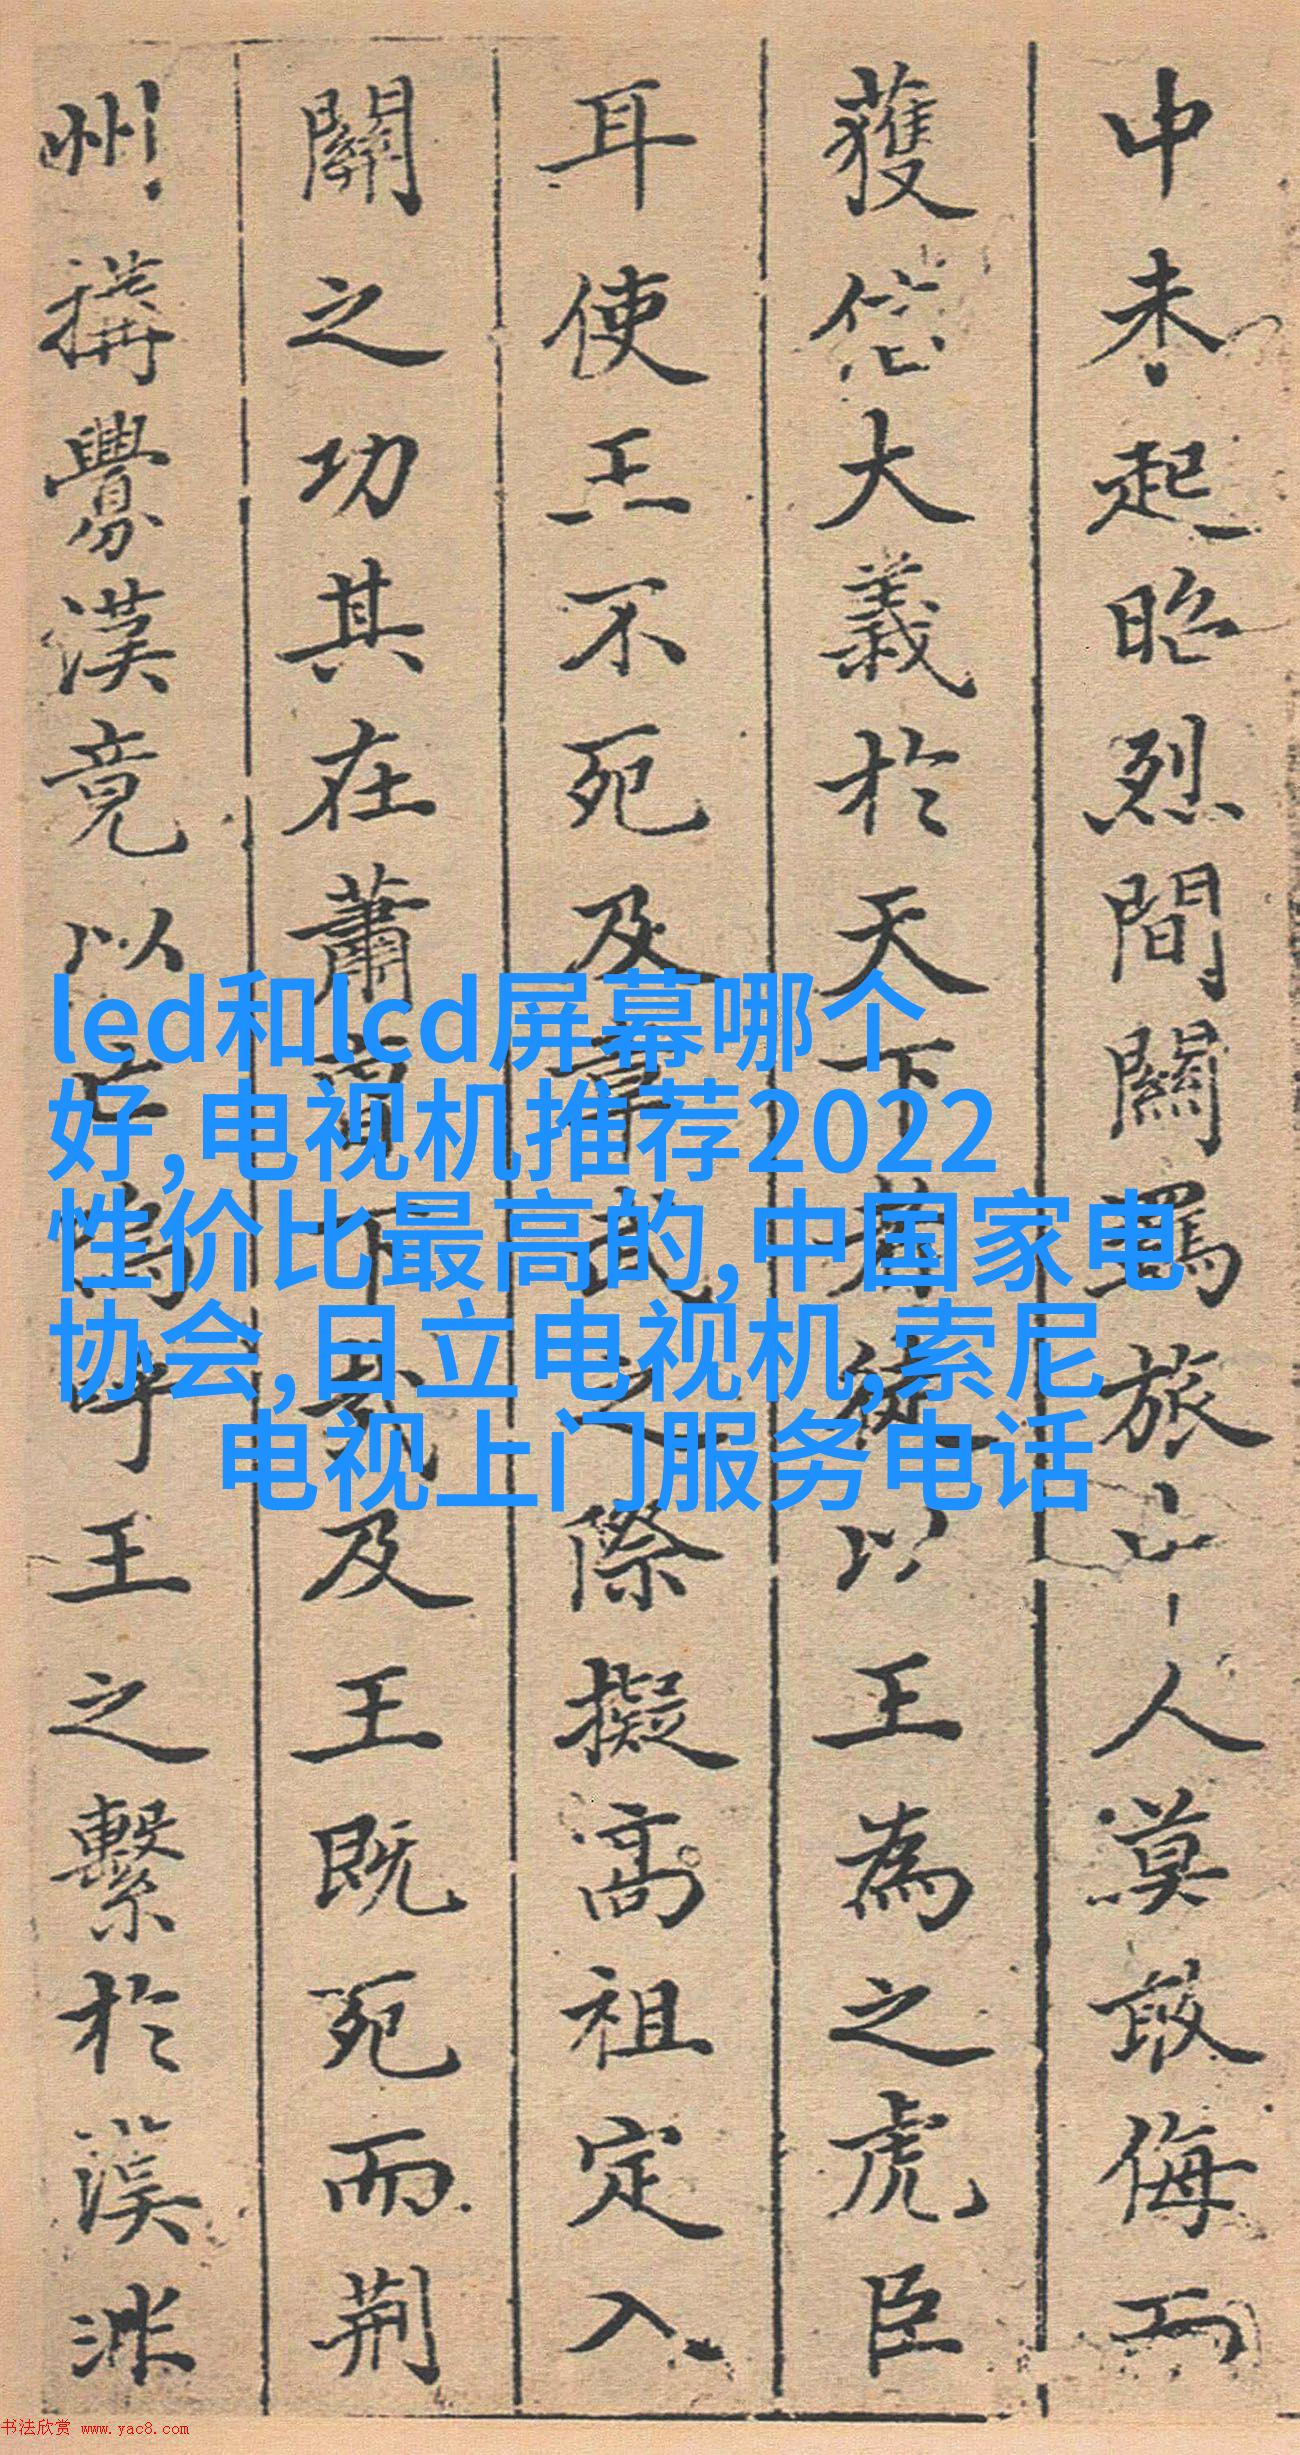 中未起昭烈間關羈旅人漠敢侮而
獲信大義於天下者徒以王為之虎臣
耳使王不死及章武之際擬高祖定入
關之功其在蕭曹下哉及王既死而荊
州搆釁漢竟以亡嗚呼王之繫於漢
led和lcd屏幕哪个
好,电视机推荐2022
性价比最高的,中国家电
协会,日立电视机,索尼
电视上门服务电话
书法欣赏 www.yac8.com